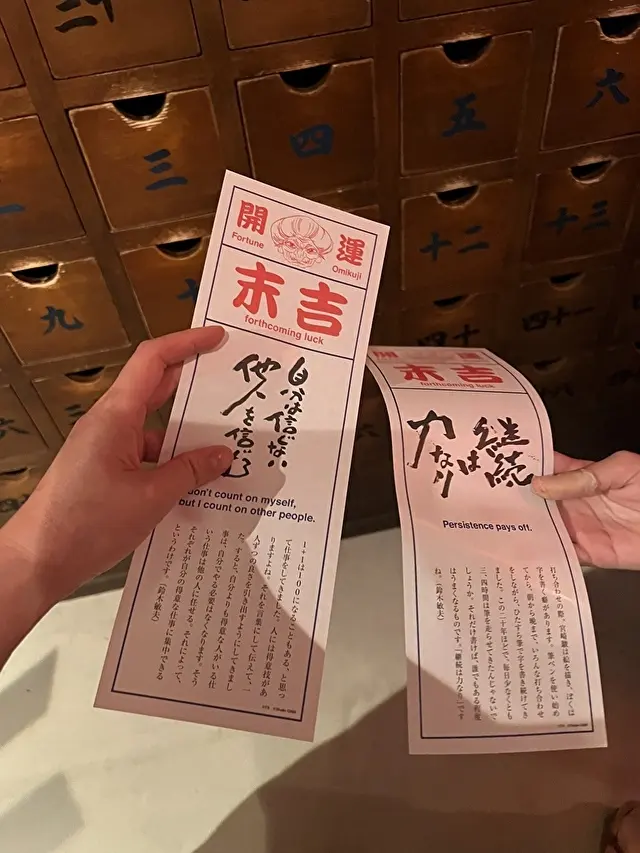 三
四
五
六
十二
十三
九
四十一
開運
Fortune
Omikuji
末吉
forthcoming luck
自分は信じない
他人を信じる
don't count on myself,
but I count on other people.
1+1は100になることもある、と思っ
て仕事をしてきました。人には得意技があ
りますよね。それを言葉にして伝えて、一
人ずつの良さを引き出すようにしてきまし
た。すると、自分よりも得意な人がいる仕
事は、自分でやる必要はなくなります。そう
いう仕事は他の人に任せる。それによって、
それぞれが自分の得意な仕事に集中できる
というわけです。(鈴木敏夫)
開運
末吉
forthcoming luck
継続は
力なり
Persistence pays off.
打ち合わせの際、宮崎駿は絵を描き、ぼくは
字を書く癖があります。筆ペンを使い始め
てから、朝から晩まで、いろんな打ち合わせ
をしながら、ひたすら筆で字を書き続けてき
ました。この二十年ほどで、毎日少なくとも
三、四時間は筆を走らせてきたんじゃないで
しょうか。それだけ書けば、誰でもある程度
はうまくなるものです。「継続は力なり」です
ね。(鈴木敏夫)